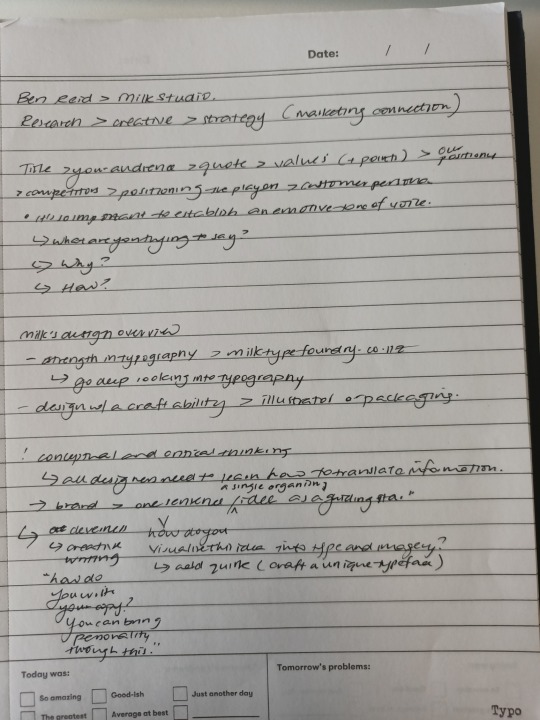 Date: / /
Ben Reid > Milk Studio.
Research > creative > strategy (marketing connection)
Title > your audience > quote > values (+ points) > our positioning
> competitors > positioning the play on > customer persona.
• it's so important to establish an emotive tone of voice.
↳ what are you trying to say?
↳ Why?
↳ How?
milk's design overview
- strength in typography > milk-type-foundry.co.nz
↳ go deep looking into typography
- design w/ a craft ability > illustrator or packaging.
! conceptual and critical thinking
↳ all designers need to learn how to translate information.
→ brand > one sentence / idee as a guiding star."
"a single organising
↳ cleverness
how do you
↳ creative writing
visualise this idea into type and imagery?
↳ add quirk (craft a unique typeface)
"how do
you write
your copy?
You can bring
personality
through this."
Today was:
Tomorrow's problems:
So amazing
Good-ish
Just another day
The greatest
Average at best
Typo